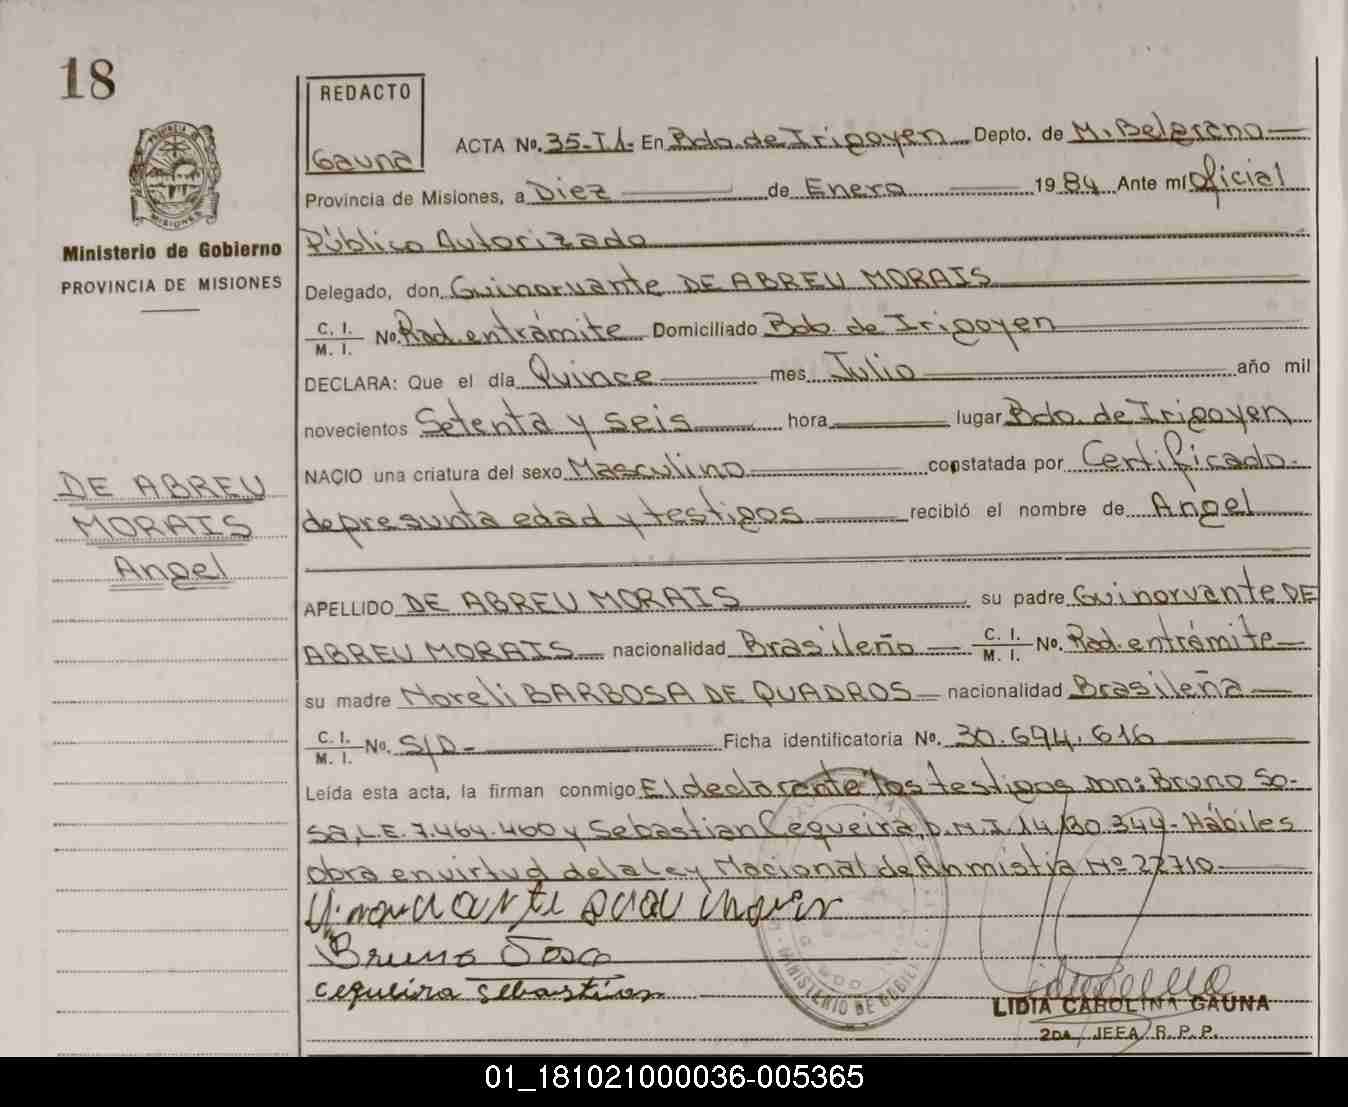 18
REDACTO
Gauna
Ministerio de Gobierno
PROVINCIA DE MISIONES
ACTA No. 35-T1. En Bdo. de Irigoyen Depto. de M. Belgrano
Provincia de Misiones, a Diez de Enero 1984 Ante mí Oficial
Público Autorizado
Delegado, don Guinorvante DE ABREU MORAIS
C. I. / M. I. No. Rad. entrámite Domiciliado Bdo. de Irigoyen
DECLARA: Que el día Quince mes Julio año mil
novecientos Setenta y seis hora lugar Bdo. de Irigoyen
NACIO una criatura del sexo Masculino constatada por Certificado
de presunta edad y testigos recibió el nombre de Angel
DE ABREU
MORAIS
Angel
APELLIDO DE ABREU MORAIS su padre Guinorvante DE
ABREU MORAIS nacionalidad Brasileño C. I. / M. I. No. Rad. entrámite
su madre Noreli BARBOSA DE QUADROS nacionalidad Brasileña
C. I. / M. I. No. S/D- Ficha identificatoria No. 30.694.616
Leída esta acta, la firman conmigo El declarante los testigos Don: Bruno So-
sa, L.E. 7.464.460 y Sebastian Cequeira, D.N.I. 14.130.344- Hábiles
Obra en virtud de la ley Nacional de Anmistia Nº 22710-
Bruno Sosa
Cequeira Sebastian
MINISTERIO DE GOBIE
LIDIA CAROLINA GAUNA
2da. JEFA R. P. P.
01_181021000036-005365